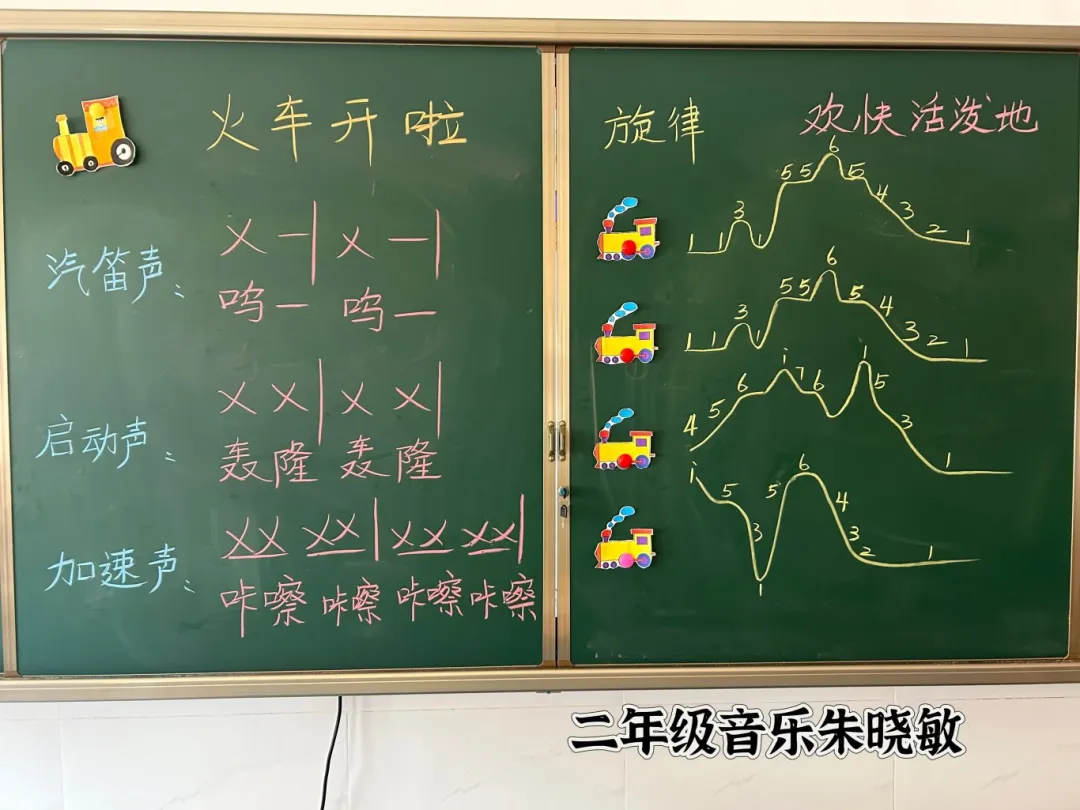 火车开啦
汽笛声：
X — | X — |
呜 — 呜 —
启动声：
X X | X X |
轰隆 轰隆
加速声：
XX XX | XX XX |
咔嚓 咔嚓 咔嚓 咔嚓
旋律 欢快活泼地
1 1 3 1 5 5 6 5 4 3 2 1
1 1 3 1 5 5 6 5 4 3 2 1
4 5 6 i 7 6 i 5 3 1
i 5 3 1 5 6 4 3 2 1
二年级音乐朱晓敏